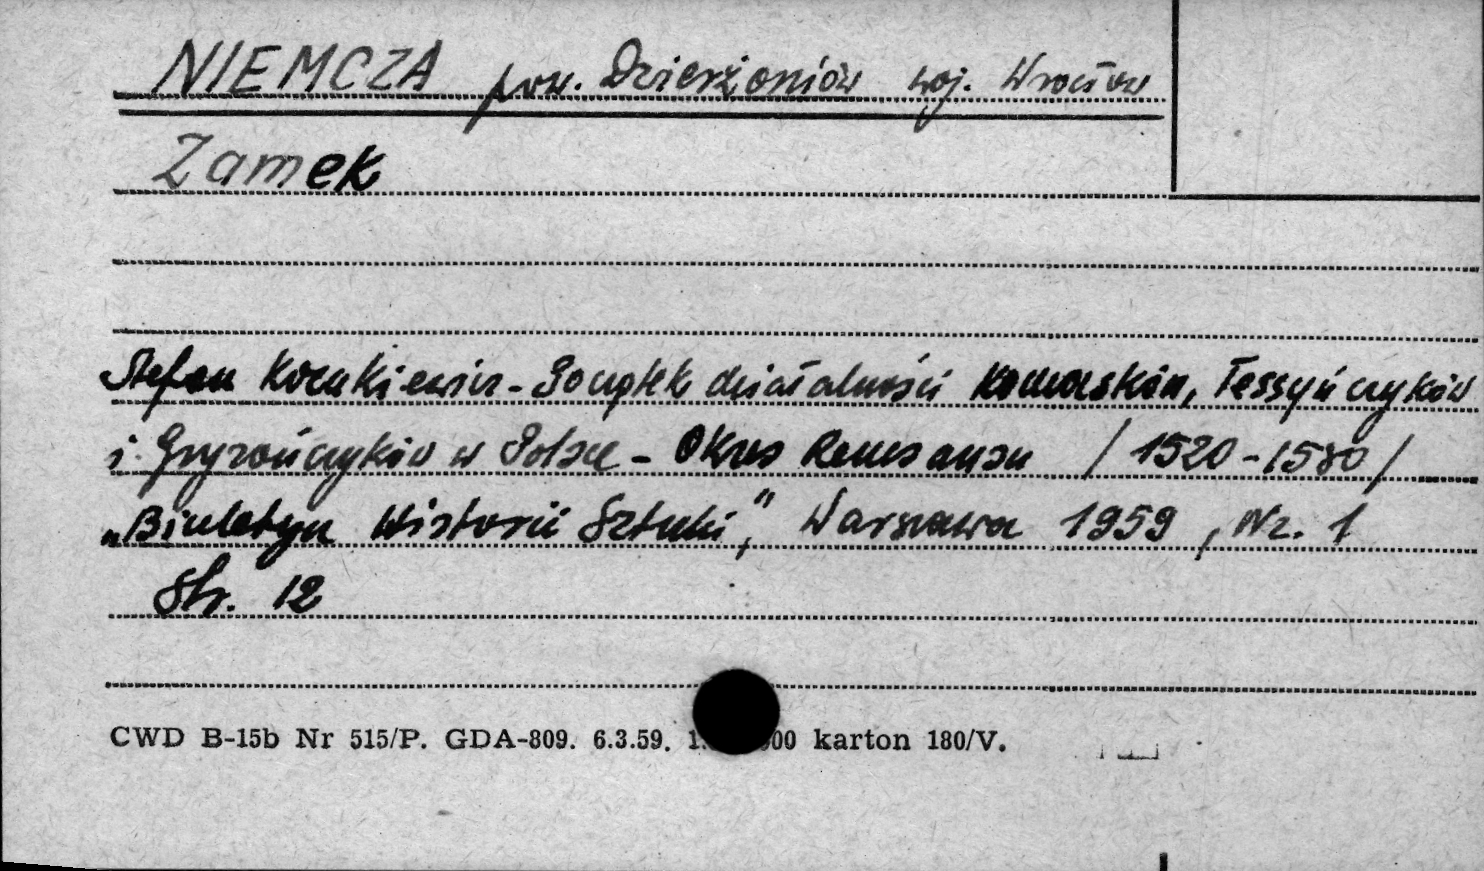 NIEMCZA pow. Dzierżoniów woj. Wrocław
Zamek
Stefan Kozakiewicz - Początek działalności Komasków, Tessyńczyków
i Gryzończyków w Polsce - Okres Renesansu / 1520 - 1580 /
„Biuletyn Historii Sztuki”, Warszawa 1959, Nr. 1
Str. 12
CWD B-15b Nr 515/P. GDA-809. 6.3.59. karton 180/V.